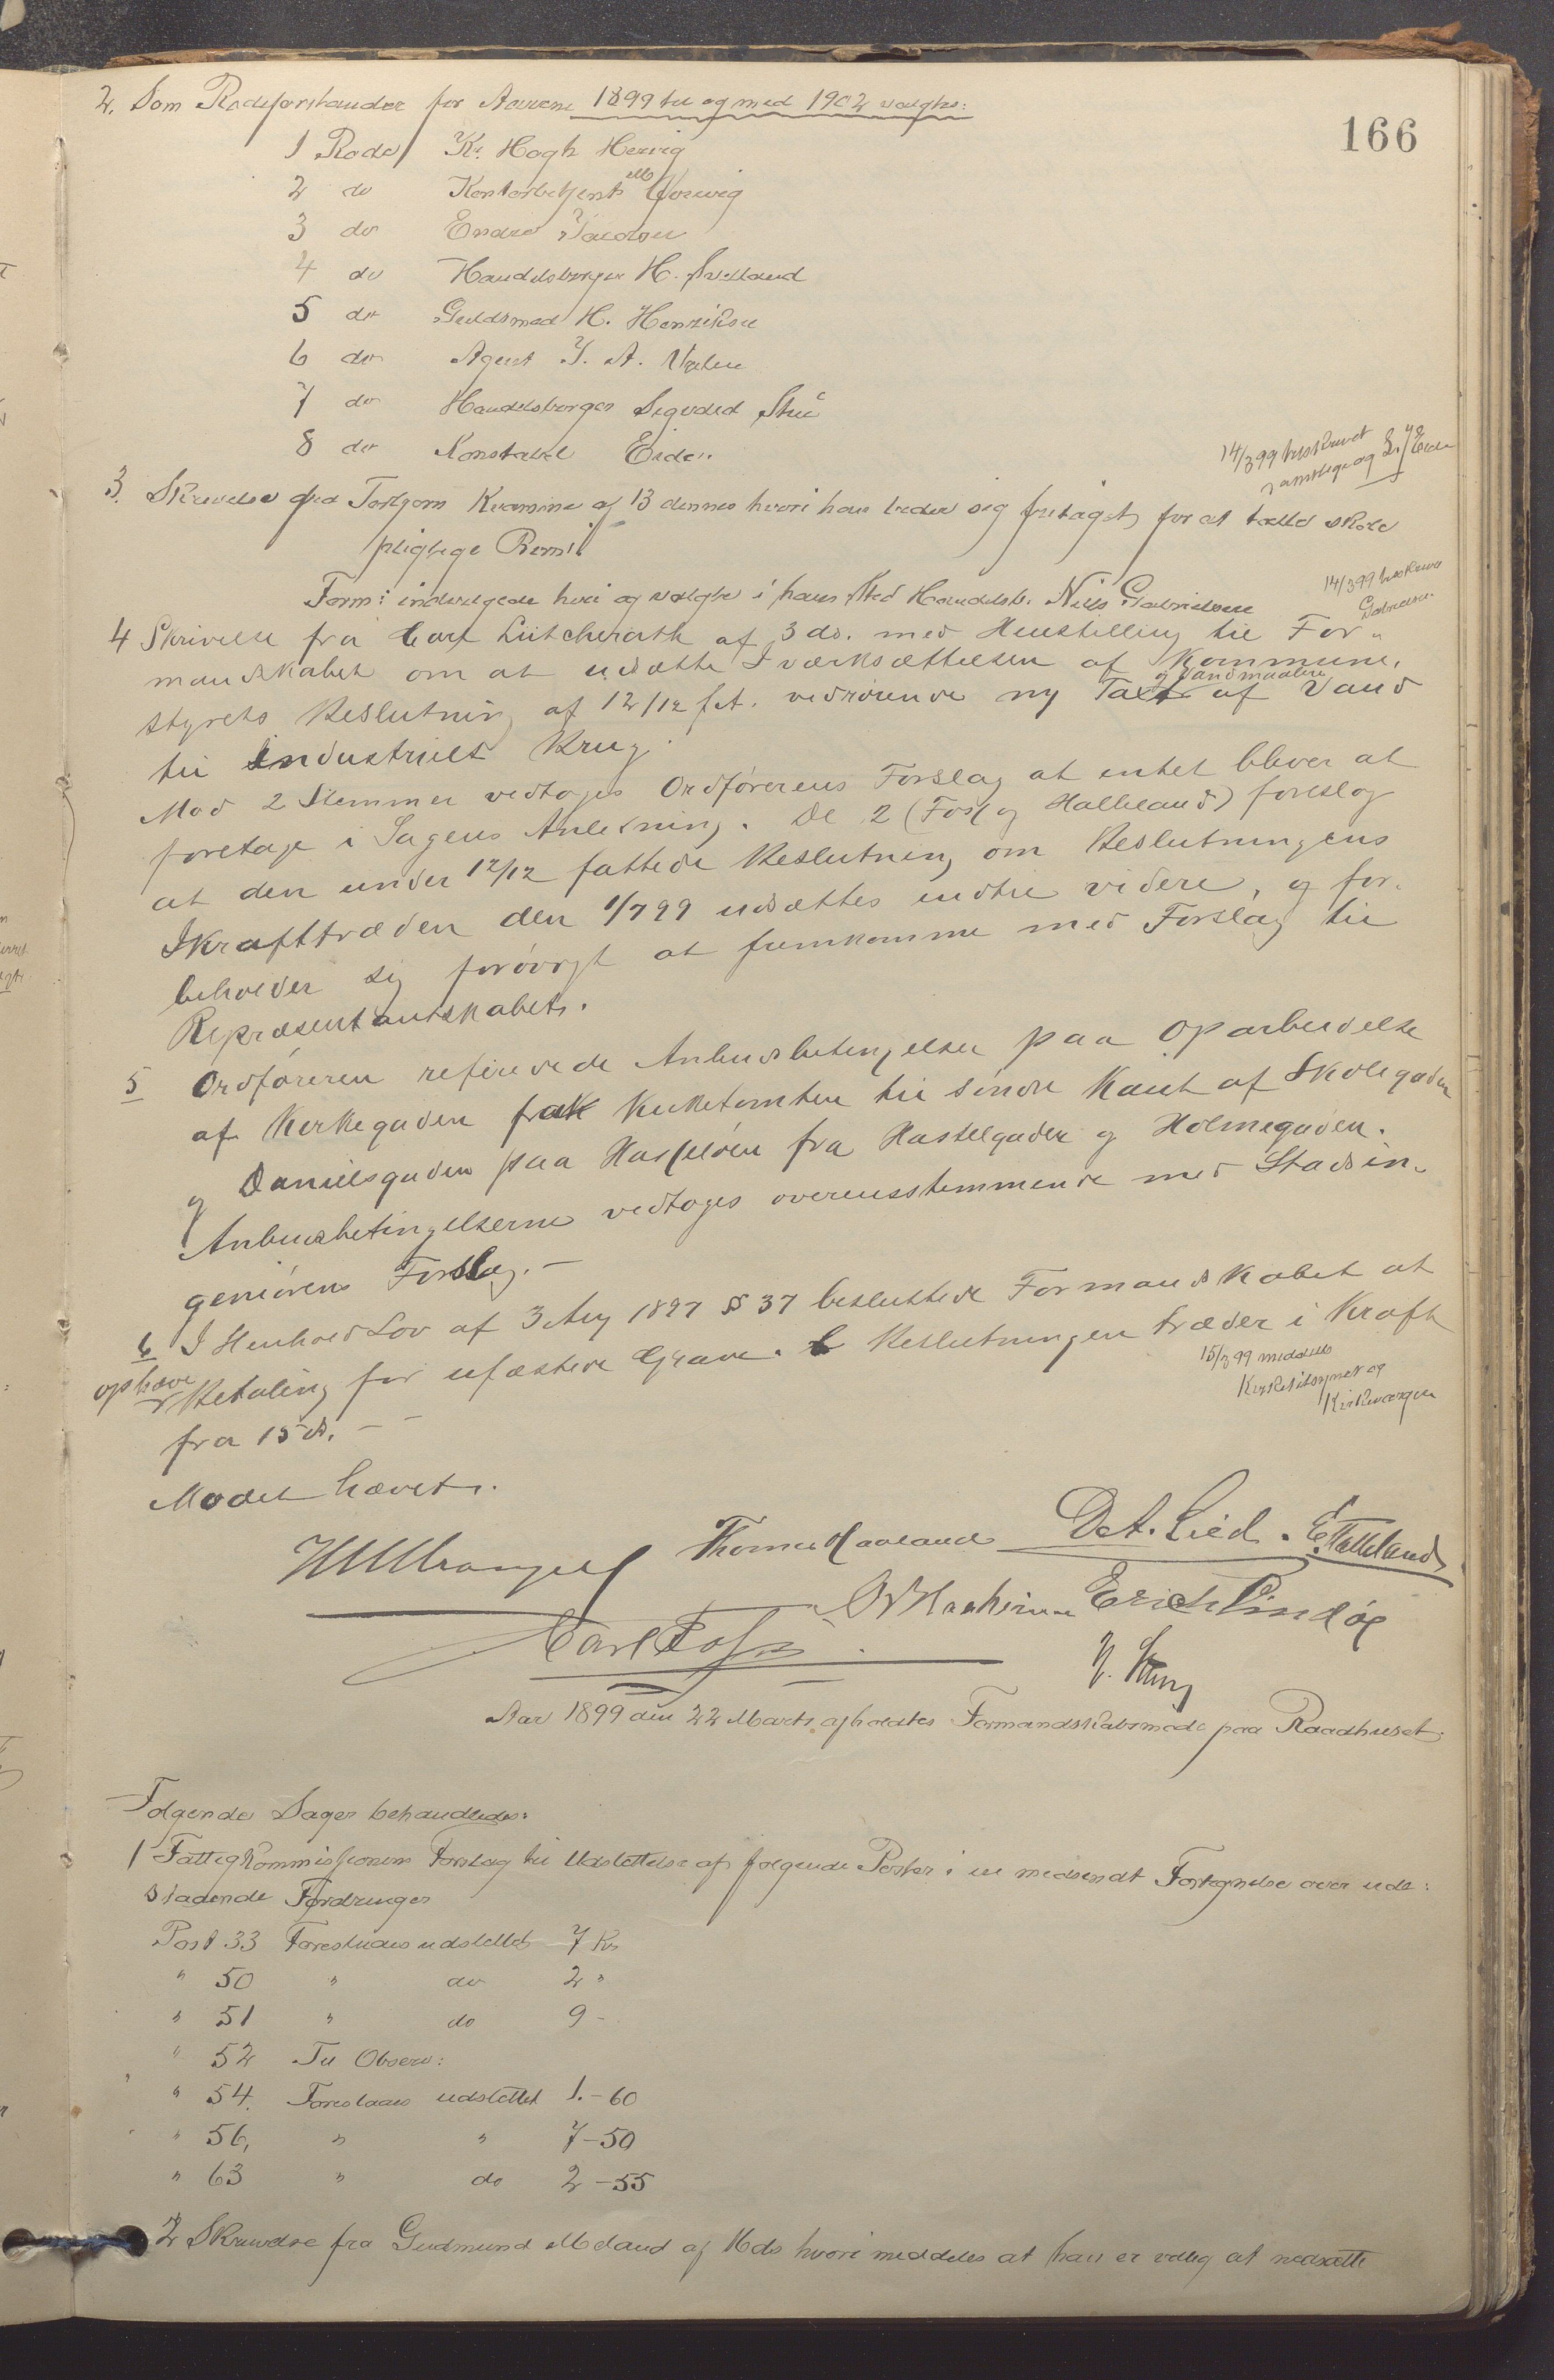 166
2. Som Rodeforstander for Aarene 1899 til og med 1902 valgtes:
1 Rode Kr. Hogh Hervig
2 do Kontorbetjent
3 do Endre
4 do Handelsborger H. Svelland
5 do Guldsmed H. Henriksen
6 do Agent J. A.
7 do Handelsborger Sigvald
8 do Konstabel Eide.
14/3 99 beskrevet
samtlige og Eide
3. Skrivelse fra Torbjørn Kvamme af 13 dennes hvori han beder sig fritaget for at tælle skole
pligtige Børn.
Form: indvilgede heri og valgte i hans Sted Handelsb. Nils Gabrielsen
14/3 99 beskrevet
Gabrielsen
4 Skrivelse fra Carl Lütcherath af 3 ds. med Henstilling til For-
mandskabet om at udsætte Iværksættelsen af Kommune-
styrets Beslutning af 12/12 f.A. vedrørende ny Taxt af Vand
og Vandmaalere
til Industrielt Brug.
Mod 2 Stemmer vedtoges Ordførerens Forslag at intet bliver at
foretage i Sagens Anledning. De 2 (Foss og Halleland) foreslog
at den under 12/12 fattede Beslutning om Beslutningens
Ikrafttræden den 1/7 99 udsættes indtil videre, og for-
beholder sig forøvrigt at fremkomme med Forslag til
Repræsentantskabet.
5 Ordføreren refererede Anbudsbetingelser paa Oparbeidelse
af Kirkegaden fra Kirketomten til søndre Kant af Skolegaden
og Danielsgaden paa Hasseløen fra Hasselgaden og Holmegaden.
Anbudsbetingelserne vedtoges overensstemmende med Stadsin-
geniørens Forslag. —
6 I Henhold Lov af 3 Aug 1897 § 37 besluttede Formandskabet at
ophæve Betaling for ufæstede Grave. Beslutningen træder i Kraft
fra 15 ds. —
15/3 99 meddelt
Kirketilsynet og
Kirkevergen
Mødet hævet.
Thomas Haaland D. A. Lied. E. Halleland
Erich Lindøe
Carl Foss
Aar 1899 den 22 Marts afholdtes Formandskabsmøde paa Raadhuset.
Følgende Sager behandledes:
1 Fattigkommissionens Forslag til Udslettelse af følgende Poster i en medsendt Fortegnelse over uds:
staaende Fordringer
Post 33 Foreslaaes udslettet 7 Kr
" 50 " do 2 "
" 51 " do 9 -
" 52 Til Observ:
" 54. Foreslaaes udslettet 1.-60
" 56, " " 7-50
" 63 " do 2-55
2 Skrivelse fra Gudmund Meland af ds hvori meddeles at han er villig at nedsætte